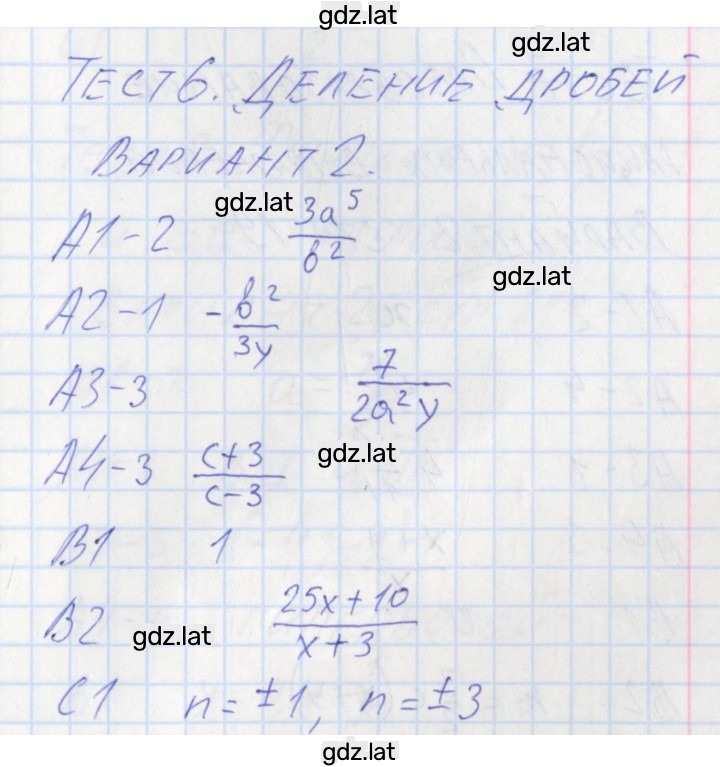 gdz.lat
gdz.lat
ТЕСТ 6. ДЕЛЕНИЕ ДРОБЕЙ
ВАРИАНТ 2.
gdz.lat
А1-2 3a⁵/b²
gdz.lat
А2-1 -b²/3y
А3-3 7/2a²y
А4-3 c+3/c-3 gdz.lat
В1 1
В2 25x+10/x+3
gdz.lat
С1 n=±1, n=±3
gdz.lat